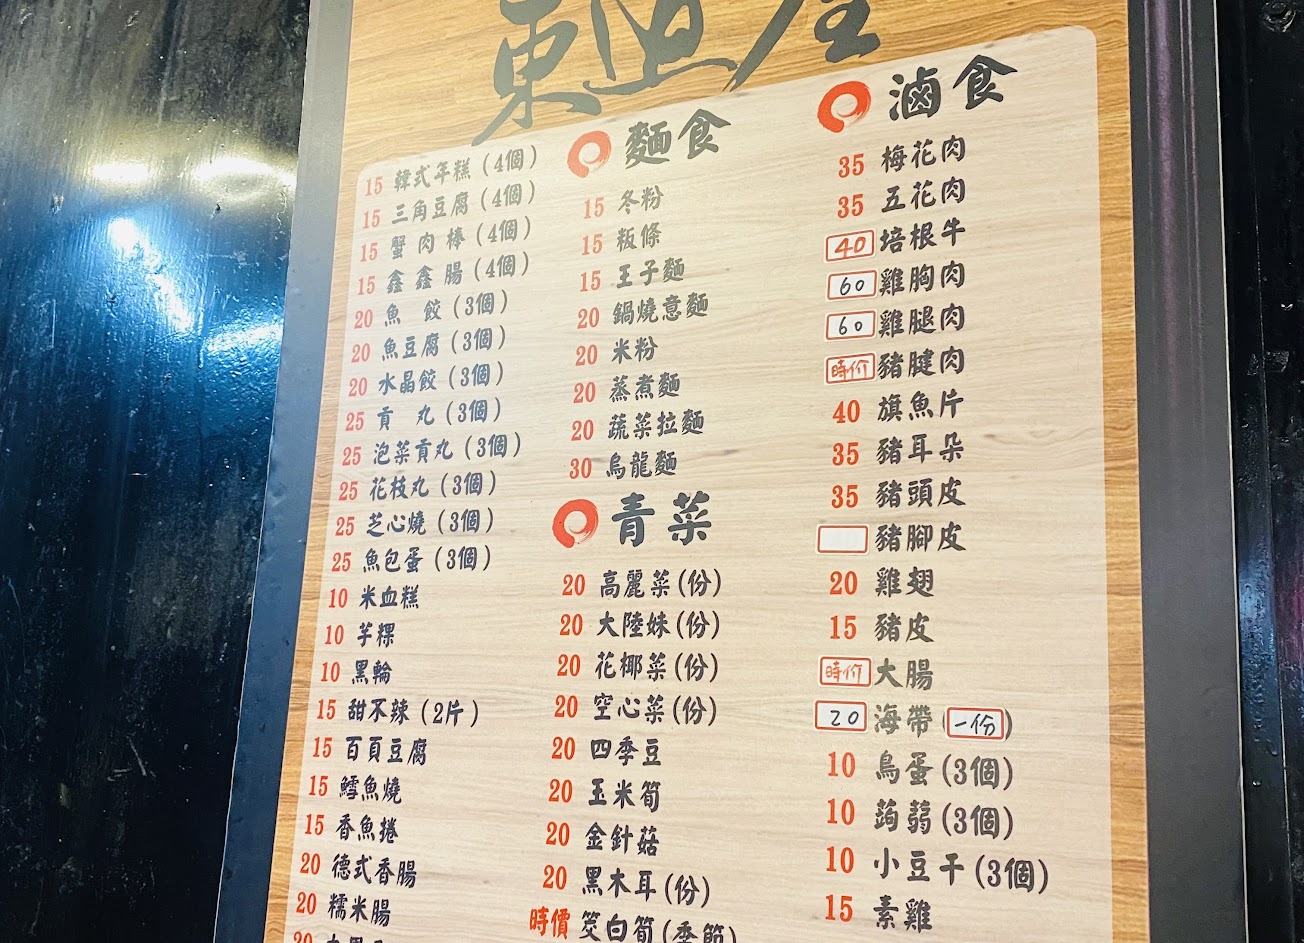 15 韓式年糕(4個)
15 三角豆腐(4個)
15 蟹肉棒(4個)
15 鑫鑫腸(4個)
20 魚餃(3個)
20 魚豆腐(3個)
20 水晶餃(3個)
25 貢丸(3個)
25 泡菜貢丸(3個)
25 花枝丸(3個)
25 芝心燒(3個)
25 魚包蛋(3個)
10 米血糕
10 芋粿
10 黑輪
15 甜不辣(2片)
15 百頁豆腐
15 鱈魚燒
15 香魚捲
20 德式香腸
20 糯米腸
麵食
15 冬粉
15 粄條
15 王子麵
20 鍋燒意麵
20 米粉
20 蒸煮麵
20 蔬菜拉麵
30 烏龍麵
青菜
20 高麗菜(份)
20 大陸妹(份)
20 花椰菜(份)
20 空心菜(份)
20 四季豆
20 玉米筍
20 金針菇
20 黑木耳(份)
時價 筊白筍(季節)
滷食
35 梅花肉
35 五花肉
40 培根牛
60 雞胸肉
60 雞腿肉
時价 豬腱肉
40 旗魚片
35 豬耳朵
35 豬頭皮
豬腳皮
20 雞翅
15 豬皮
時价 大腸
20 海帶(一份)
10 鳥蛋(3個)
10 蒟蒻(3個)
10 小豆干(3個)
15 素雞